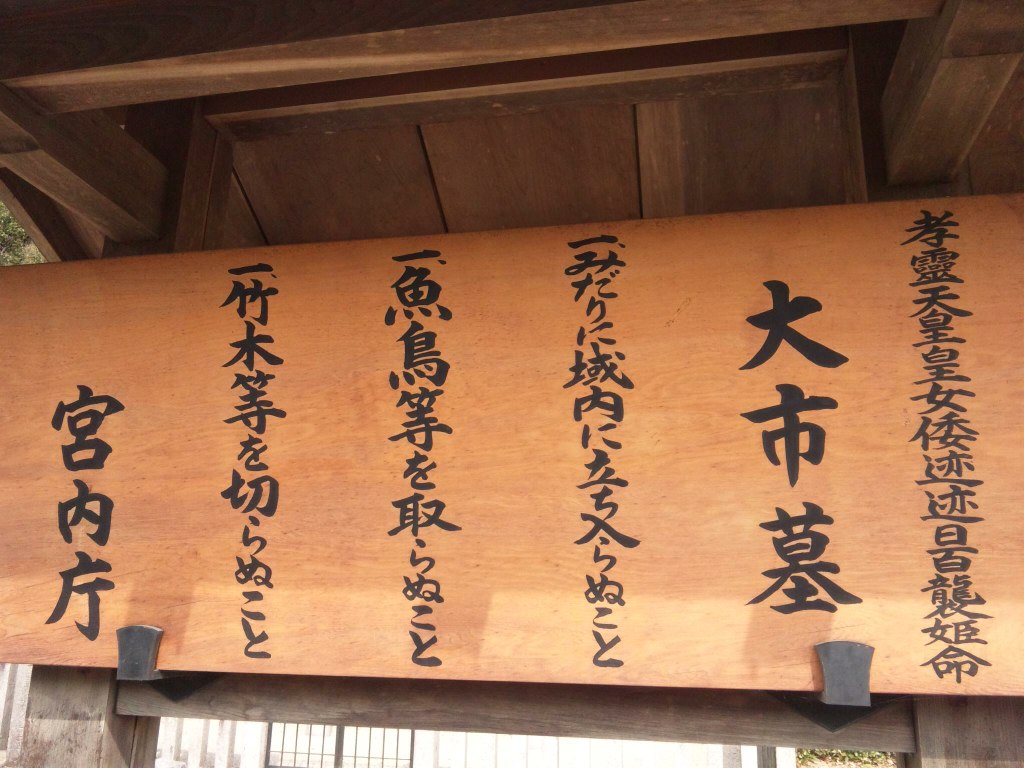 孝靈天皇皇女倭迹迹日百襲姫命
大市墓
一、みだりに域内に立ち入らぬこと
一、魚鳥等を取らぬこと
一、竹木等を切らぬこと
宮内庁